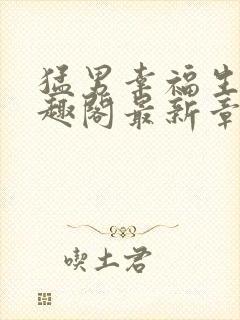 猛男幸福生
趣阁最新章
喫土君